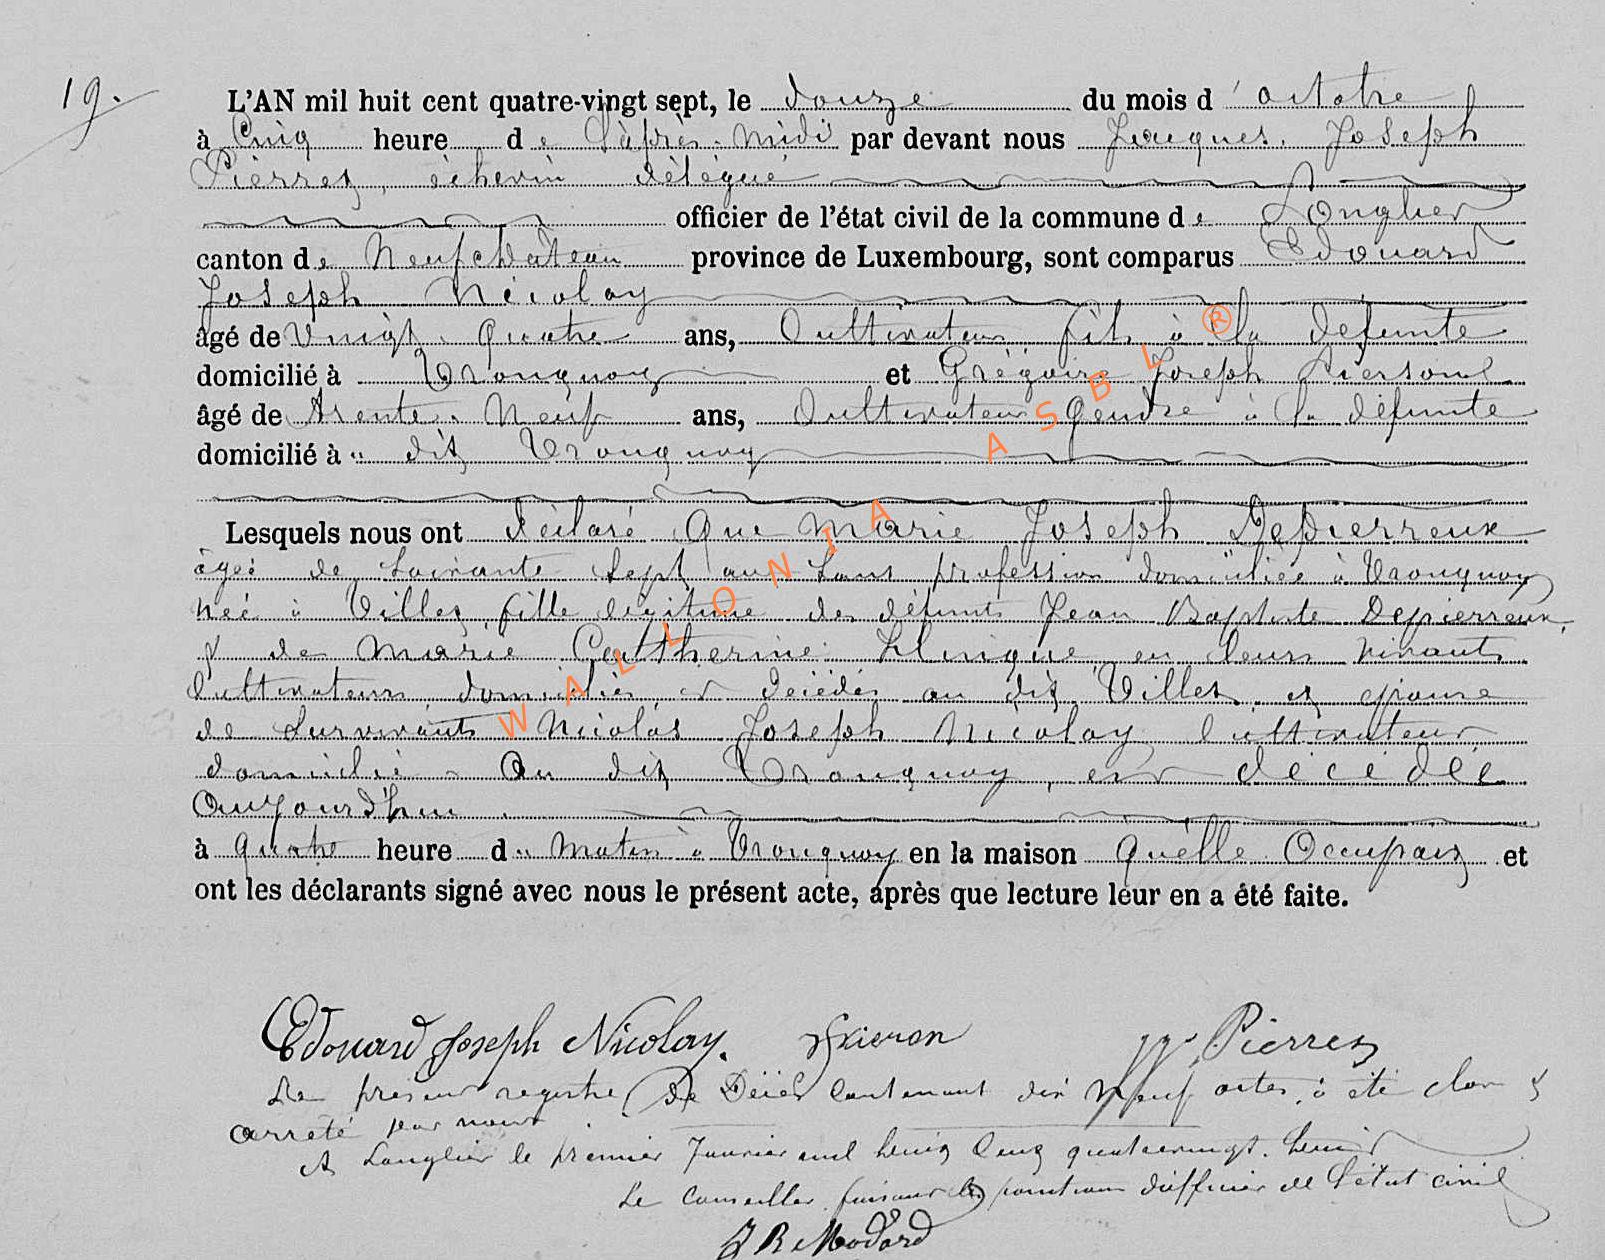 19.
L'AN mil huit cent quatre-vingt sept, le douze du mois d'octobre
à Cinq heure de L'après-midi par devant nous Jacques Joseph
Pierret, échevin délégué
officier de l'état civil de la commune de Longlier
canton de Neufchâteau province de Luxembourg, sont comparus Edouard
Joseph Nicolay
âgé de Vingt quatre ans, Cultivateur fils à la défunte
domicilié à Tronquoy et Grégoire Joseph Piersons
âgé de trente Neuf ans, Cultivateur Gendre à la défunte
domicilié à u dit Tronquoy
Lesquels nous ont déclaré Que Marie Joseph Depierreux
âgée de Soixante Sept ans Sans profession domiciliée à Tronquoy
Née à Villez, fille légitime des défunts Jean Baptiste Depierreux,
& de Marie Catherine en leurs vivants
Cultivateurs domiciliés et décédés au dit Villez, et épouse
de Survivants Nicolas Joseph Nicolay Cultivateur
domicilié Au dit Tronquoy, est décédée
Aujourd'hui
à quatre heure du Matin à Tronquoy en la maison Qu'elle Occupait et
ont les déclarants signé avec nous le présent acte, après que lecture leur en a été faite.
Edouard Joseph Nicolay. JJ Pierret
Le présent registre De Décès Contenant dix Neuf actes, a été clos &
arrêté par nous
A Longlier le premier Janvier mil huit Cent quatrevingt huit
Le Conseiller faisant les fonctions d'officier de l'état civil
WALLONIA ASBL ®